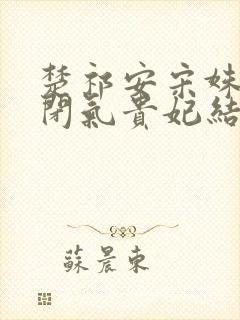 楚祁安宋妹
閉氣貴妃結
蘇晨東